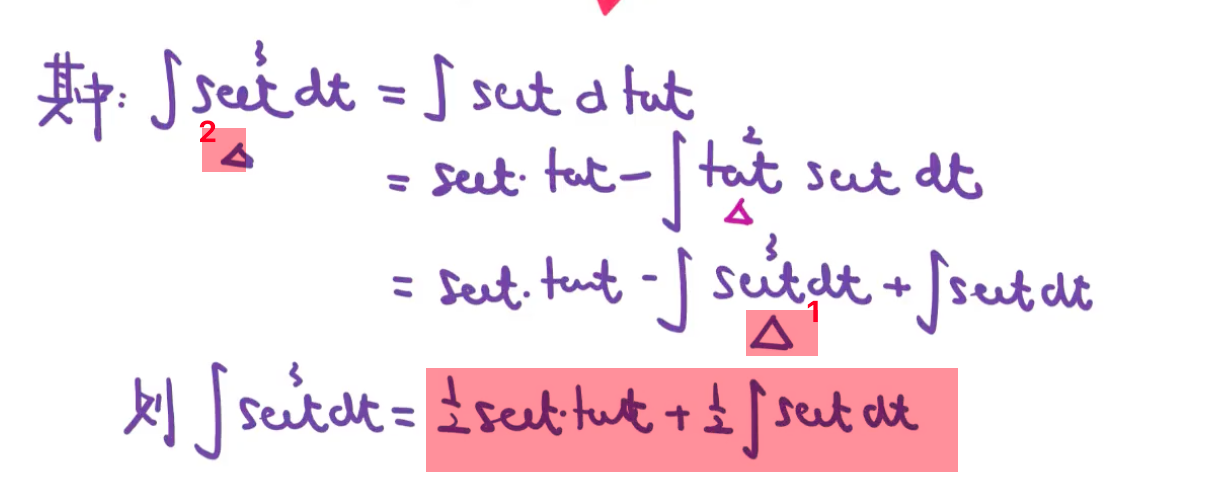 其中: ∫ sec³t dt = ∫ sect d tant
2 △
= sect · tant - ∫ tan²t sect dt
△
= sect · tant - ∫ sec³t dt + ∫ sect dt
△ 1
则 ∫ sec³t dt = 1/2 sect · tant + 1/2 ∫ sect dt